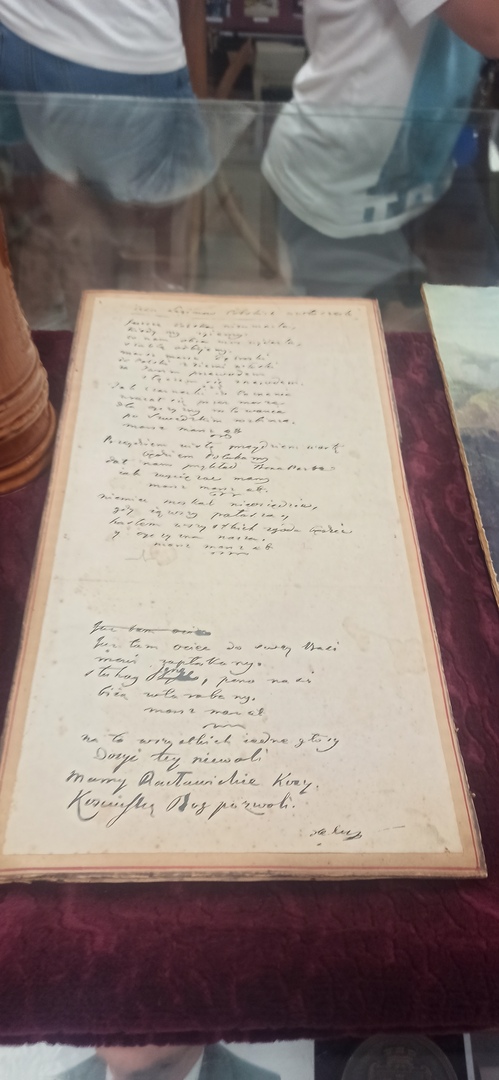 Jeszcze Polska nie umarła,
kiedy my żyjemy
co nam obca moc wydarła,
szablą odbijemy.
marsz marsz Dąbrowski
do Polski z ziemi włoski
za Twoim przewodem
złączem się z narodem.
Jak Czarnecki do Poznania
wracał się przez morze
dla oyczyzny ratowania
po Szwedzkim rozbiorze.
marsz marsz etc
Przejdziem wisłę przejdziem wartę
będziem Polakami
dał nam przykład Bonaparte
jak zwyciężać mamy
marsz marsz etc.
niemiec moskal nieosiędzie,
gdy jąwszy pałasza,
hasłem wszystkich zgoda będzie
y oyczyzna nasza.
marsz marsz etc
Już tam ociec
Już tam ociec do swey Basi
mówi zapłakany.
słuchay jeno, pono nasi
biią w tarabany.
marsz marsz etc
na to wszystkich iedne głosy
Dosyć tey niewoli
Mamy Racławickie Kosy,
Kościuszkę Bóg pozwoli.